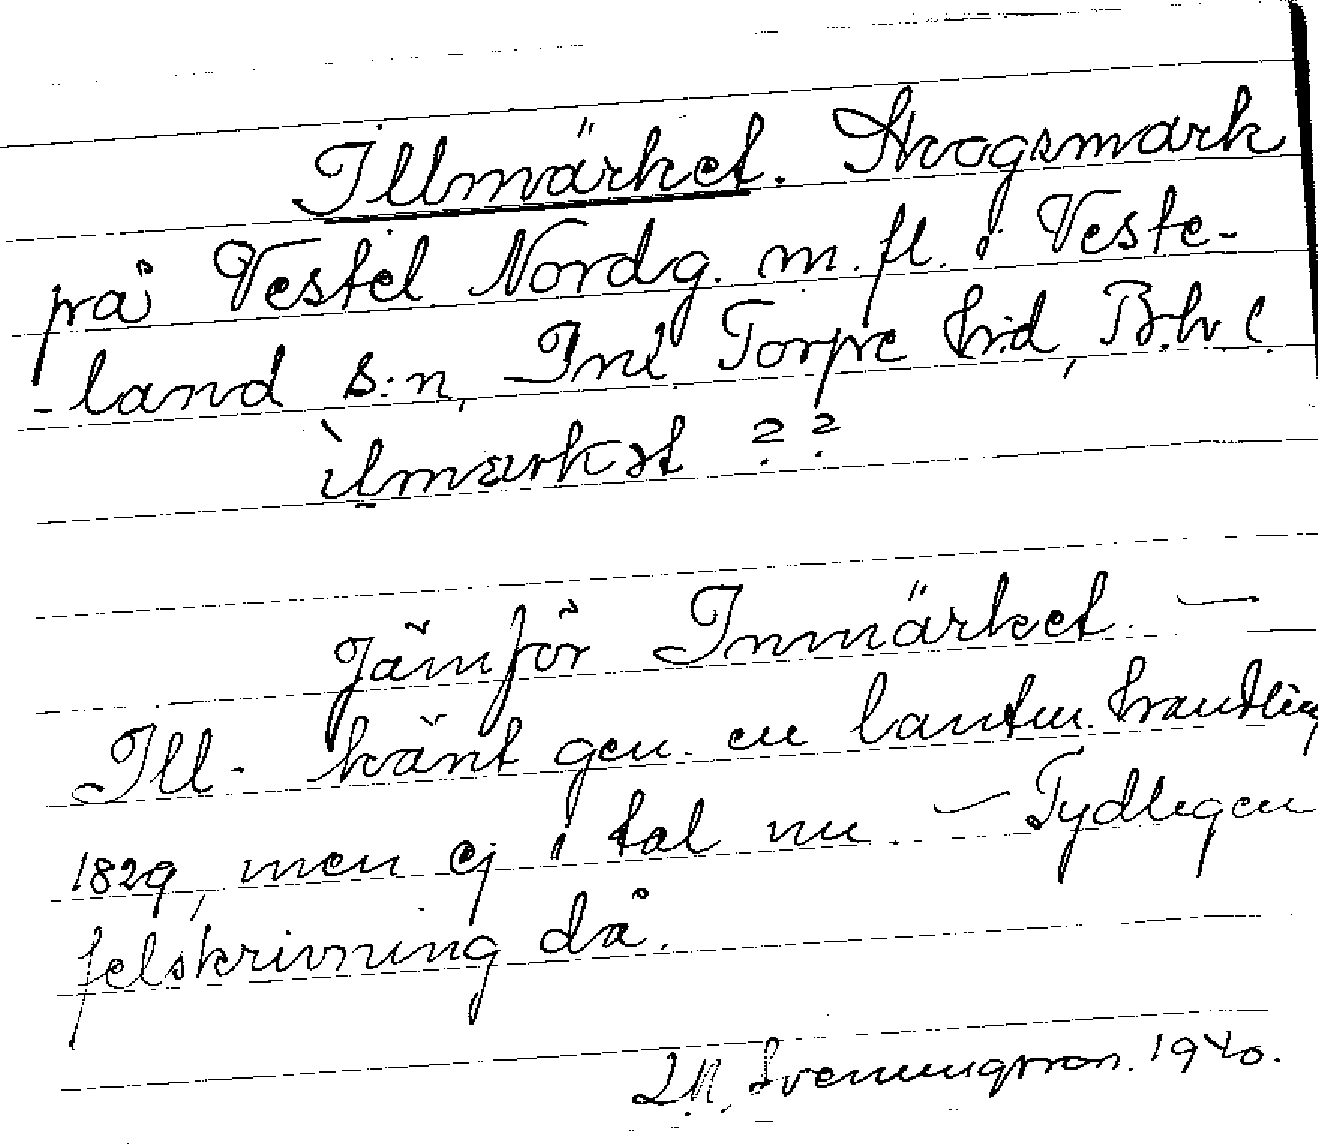 Illmärket. Skogsmark
på Vestel Nordg. m. fl. i Veste-
-land s:n, Inl. Torpe hd, Bh. l.
ìlmarkət ? ?
Jämför Inmärket. —
Ill- känt gen. en lantm. handling
1829, men ej i tal nu. — Tydligen
felskrivning då.
Svenungsson. 1940.